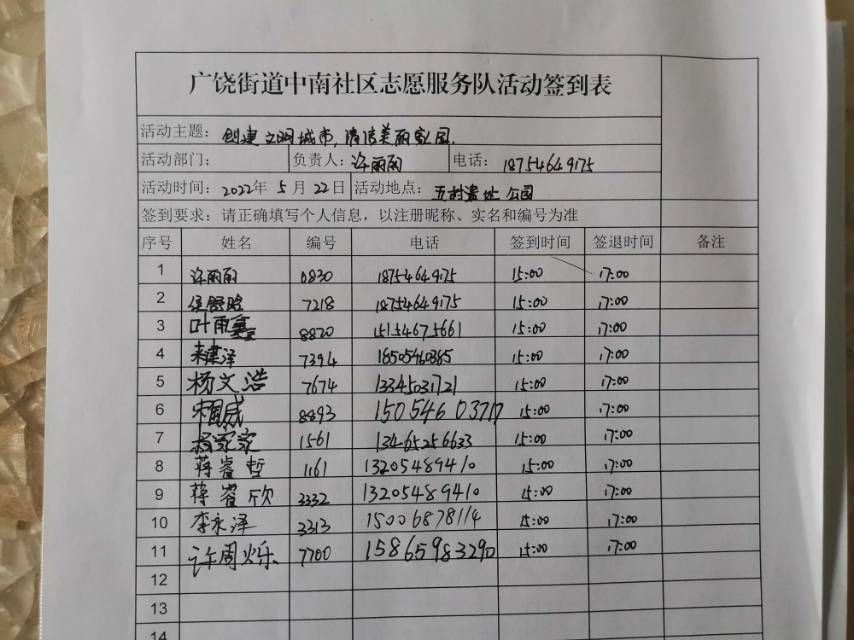 广饶街道中南社区志愿服务队活动签到表
活动主题：创建文明城市，清洁美丽家园.
活动部门： 负责人：许丽丽 电话：18754649175
活动时间：2022年 5 月 22 日 活动地点：五村遗址公园
签到要求：请正确填写个人信息，以注册昵称、实名和编号为准
序号 姓名 编号 电话 签到时间 签退时间 备注
1 许丽丽 0830 18754649175 15:00 17:00
2 7218 18754649175 15:00 17:00
3 叶雨鑫 8820 15154675661 15:00 17:00
4 7394 18505460385 15:00 17:00
5 杨文浩 7674 13345031721 15:00 17:00
6 8893 15054603717 15:00 17:00
7 杨家家 1561 13465256633 15:00 17:00
8 蒋睿哲 1161 13205489410 15:00 17:00
9 蒋睿欣 3332 13205489410 15:00 17:00
10 李永泽 3313 15006878114 15:00 17:00
11 许周烁 7700 15865983290 15:00 17:00
12
13
14